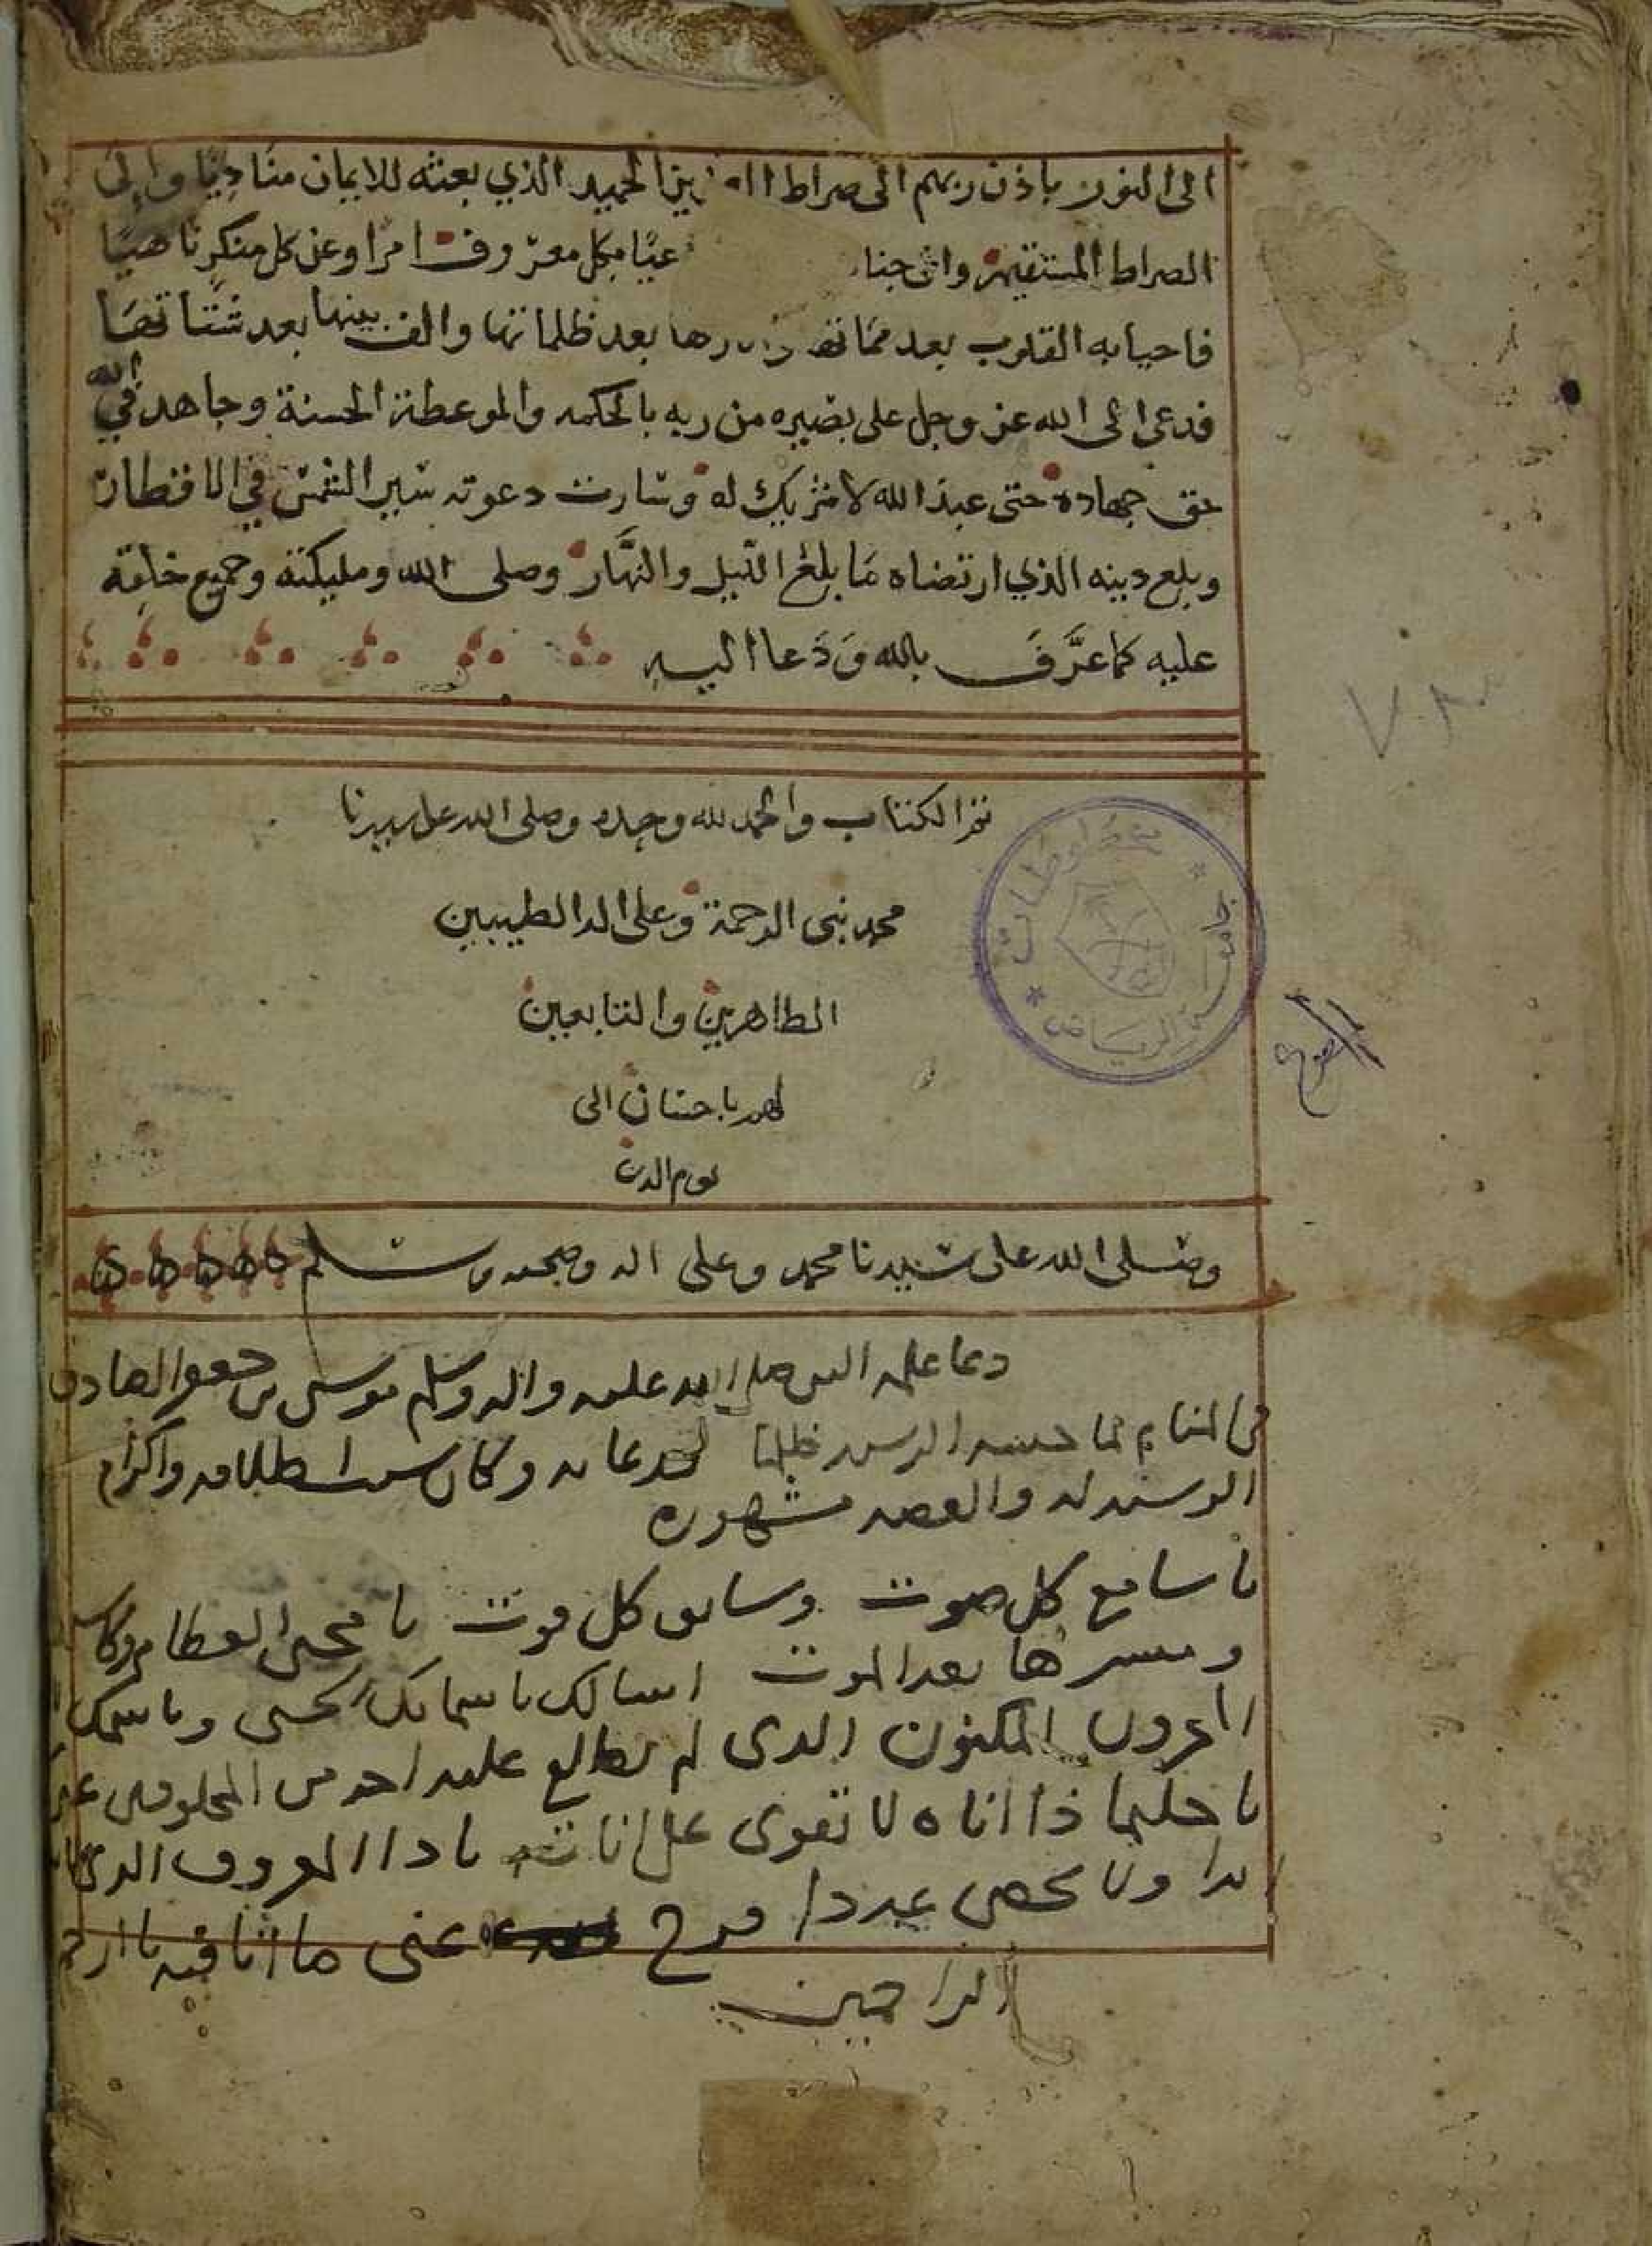 الى النور باذن ربهم الى صراط العزيز الحميد الذي بعثه للايمان مناديًا والى
الصراط المستقيم وا جنا عيًا بكل معروف امرا وعن كل منكر ناهيًا
فاحيا به القلوب بعد مماتها رها بعد ظلماتها والف بينها بعد شتاتها
فدعى الى الله عز وجل على بصيره من ربه بالحكمه والموعظة الحسنة وجاهد في الله
حق جهاده حتى عبد الله لا شريك له وسارت دعوته سير الشمس في الاقطار
وبلغ دينه الذي ارتضاه ما بلغ الليل والنهَّار وصلى الله ومليكته وجميع خلقه
عليه كما عرَّف بالله وَدَعا اليه
تم الكتاب والحمد لله وحده وصلى الله على سيدنا
محمد نبى الرحمة وعلى اله الطيبين
الطاهرين والتابعين
لهم باحسان الى
يوم الدين
وصلى الله على سيدنا محمد وعلى اله وصحبه وسلم
دعا علمه النبي صلى الله عليه واله وسلم موسى بن جعفر الصادق
في المنام لما حبسه الرشيد ظلما فدعا به وكان سبب اطلاقه واكرام
الرشيد له والقصه مشهوره
يا سامع كل صوت وسابق كل فوت يا محيي العظام
ومنشرها بعد الموت اسالك باسمايك الحسنى وباسمك
المخزون المكنون الذي لم يطلع عليه احد من المخلوقين
يا حليما ذا اناه لا تقوى على اناته يا ذا المعروف الذي
ابدا ولا يحصى عددا فرج عنى ما انا فيه يا ارحم
الراحمين
جامعة الرياض
مخطوطات
٧٨